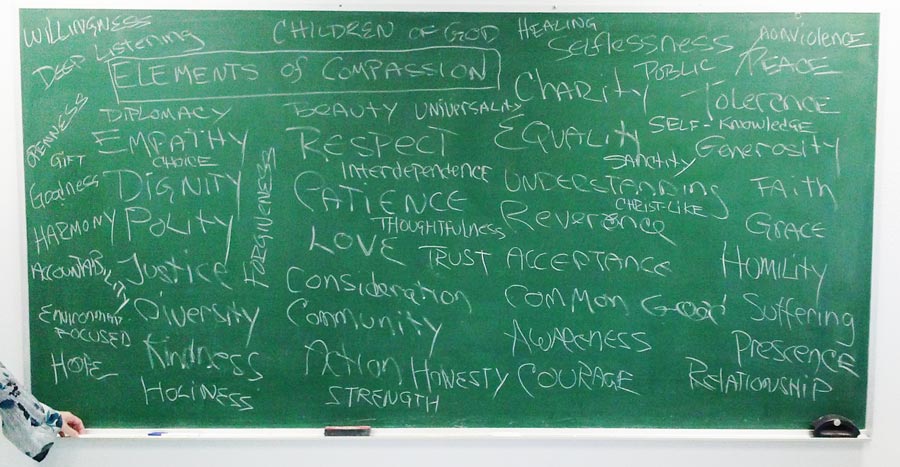 WILLINGNESS
DEEP LISTENING
CHILDREN OF GOD
HEALING
Selflessness
NONVIOLENCE
ELEMENTS of COMPASSION
PUBLIC PEACE
CHARITY
TOLERENCE
OPENNESS
DIPLOMACY
BEAUTY
UNIVERSALITY
EMPATHY
RESPECT
EQUALITY
SELF-KNOWLEDGE
GENEROSITY
GIFT
CHOICE
INTERDEPENDENCE
SANCTITY
GOODNESS
DIGNITY
FORGIVENESS
PATIENCE
UNDERSTANDING
CHRIST-LIKE
FAITH
HARMONY
POLITY
THOUGHTFULNESS
REVERENCE
GRACE
LOVE
TRUST
ACCEPTANCE
HUMILITY
ACCOUNTABILITY
JUSTICE
CONSIDERATION
COMMON GOOD
SUFFERING
ENVIRONMENT
FOCUSED
DIVERSITY
COMMUNITY
AWARENESS
PRESCENCE
HOPE
KINDNESS
ACTION
HONESTY
COURAGE
RELATIONSHIP
HOLINESS
STRENGTH